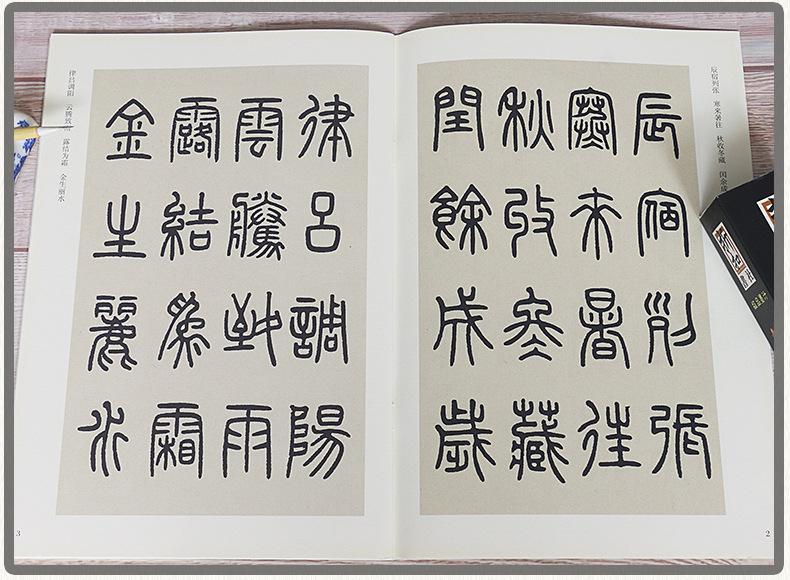 辰宿列張
寒來暑往
秋收冬藏
閏餘成歲
辰宿列张 寒来暑往 秋收冬藏 闰余成
2
律呂調陽
雲騰致雨
露結為霜
金生麗水
律吕调阳 云腾致雨 露结为霜 金生丽水
3